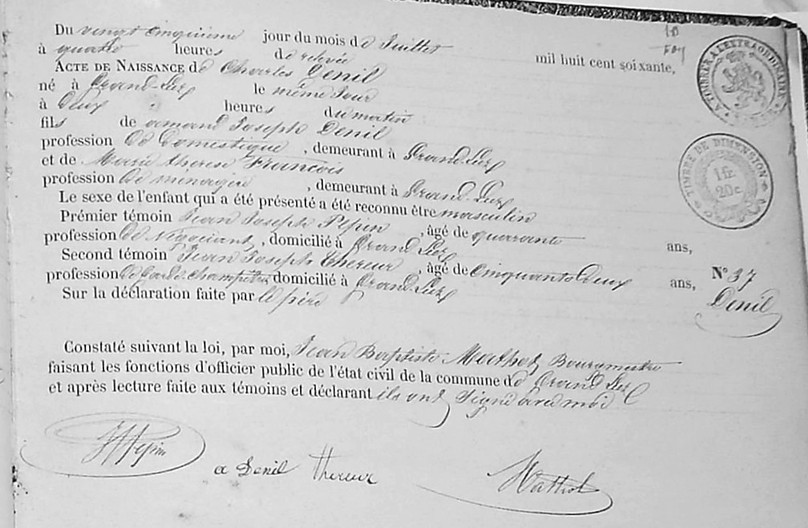 Du vingt cinquième jour du mois de Juillet mil huit cent soixante,
à quatre heures de relevée
ACTE DE NAISSANCE de Charles Denil
né à Grand-Lez le même jour
à deux heures du matin
fils de armand Joseph Denil
profession de Domestique, demeurant à Grand-Lez
et de Marie thérèse François
profession de ménagère, demeurant à Grand-Lez
Le sexe de l'enfant qui a été présenté a été reconnu être masculin
Prémier témoin Jean Joseph Pepin, âgé de quarante ans,
profession de Négociant, domicilié à Grand-Lez
Second témoin Jean Joseph thereur, âgé de cinquante deux ans,
profession de garde champêtre domicilié à Grand-Lez
Sur la déclaration faite par le père
N° 37
Denil
Constaté suivant la loi, par moi, Jean Baptiste Mathot, Bourgmestre
faisant les fonctions d'officier public de l'état civil de la commune de Grand-Lez
et après lecture faite aux témoins et déclarant ils ont signé avec moi
Pepin
a Denil thereur
Mathot
A TIMBRER A L'EXTRAORDINAIRE
TIMBRE DE DIMENSION
1 fr.
20 c.